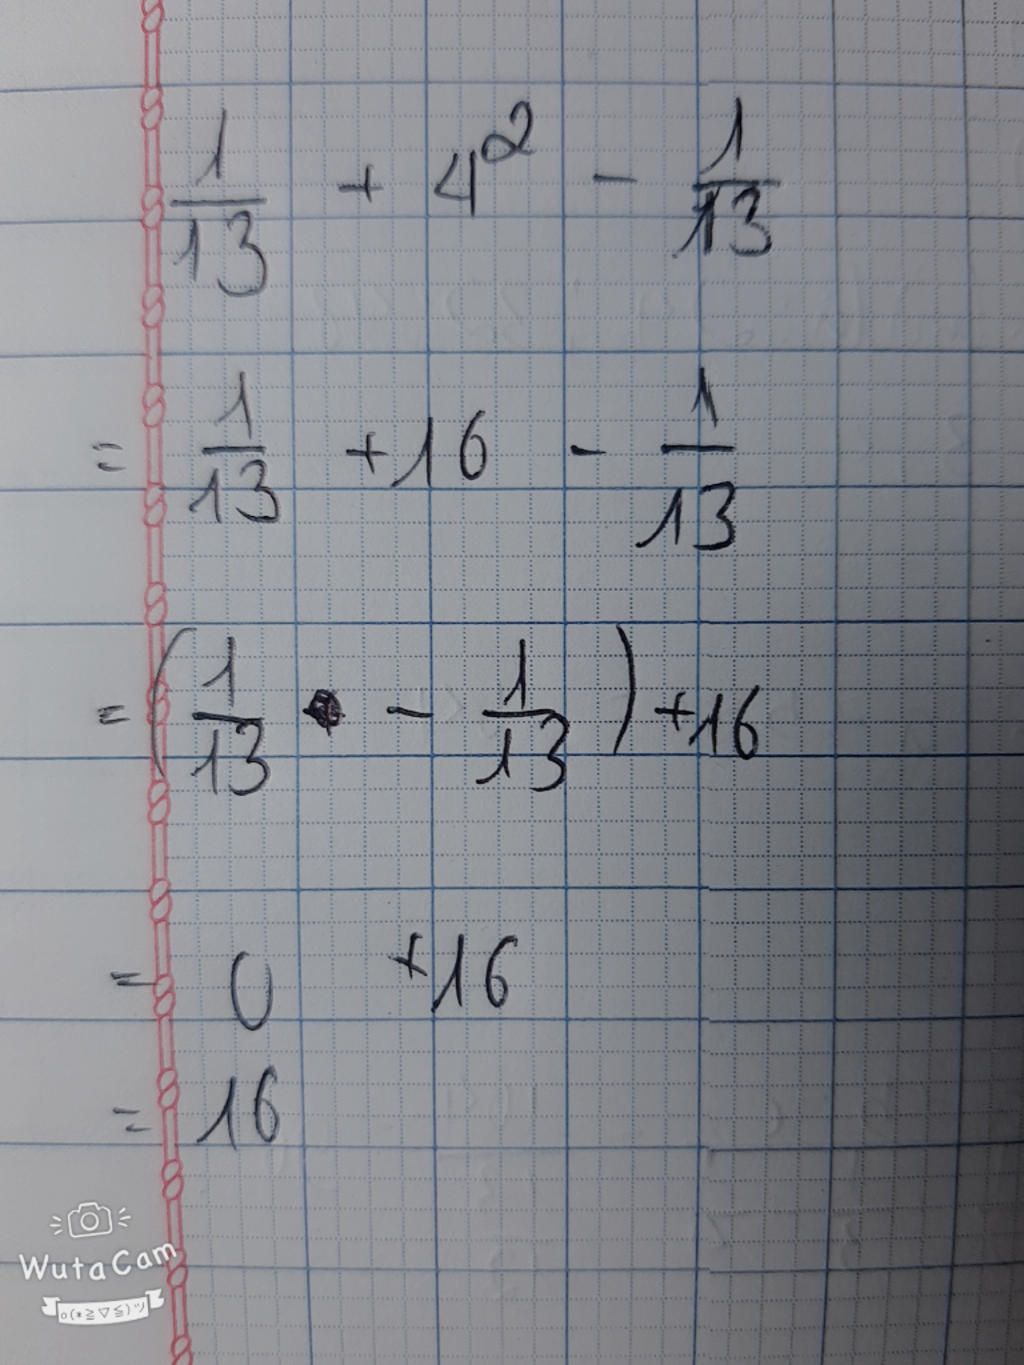 1/13 + 4² - 1/13
= 1/13 + 16 - 1/13
= (1/13 - 1/13) + 16
= 0 + 16
= 16
WutaCam
o(*≧▽≦)ツ